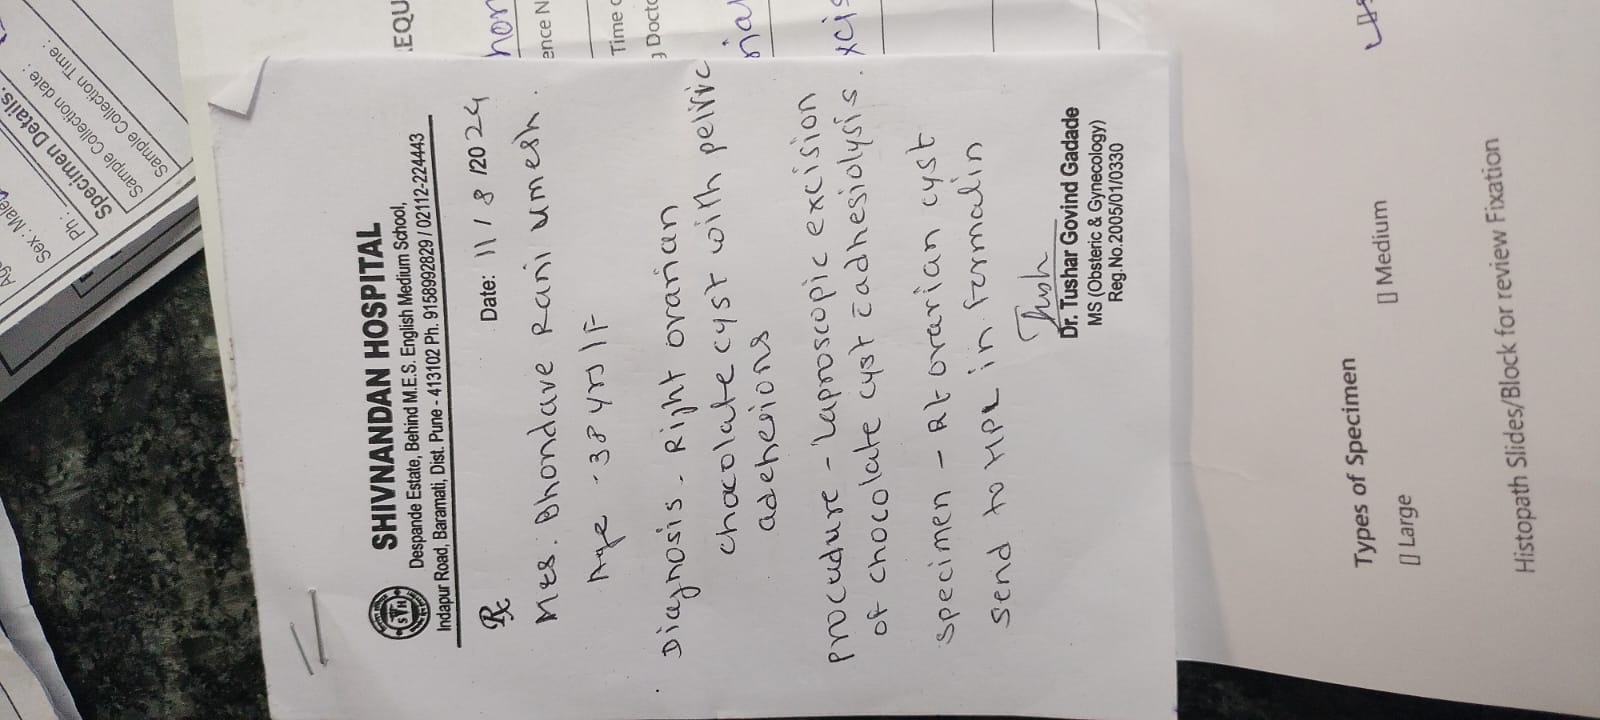 SHIVNANDAN HOSPITAL
Despande Estate, Behind M.E.S. English Medium School,
Indapur Road, Baramati, Dist. Pune - 413102 Ph. 9158992829 / 02112-224443
Rx Date: 11 / 8 /2024
Mrs. Bhondave Rani Umesh.
Age - 38 yrs / F
Diagnosis - Right ovarian
chocolate cyst with pelvic
adehesions
procedure - laproscopic excision
of chocolate cyst c adhesiolysis.
specimen - Rt ovarian cyst
send to HPE in formalin
Tush
Dr. Tushar Govind Gadade
MS (Obsteric & Gynecology)
Reg.No.2005/01/0330
Types of Specimen
Large
Medium
Histopath Slides/Block for review Fixation
Sex : Male
Ph :
Specimen Details.
Sample Collection date :
Sample Collection Time :
EQU
ence N
Time
Docto